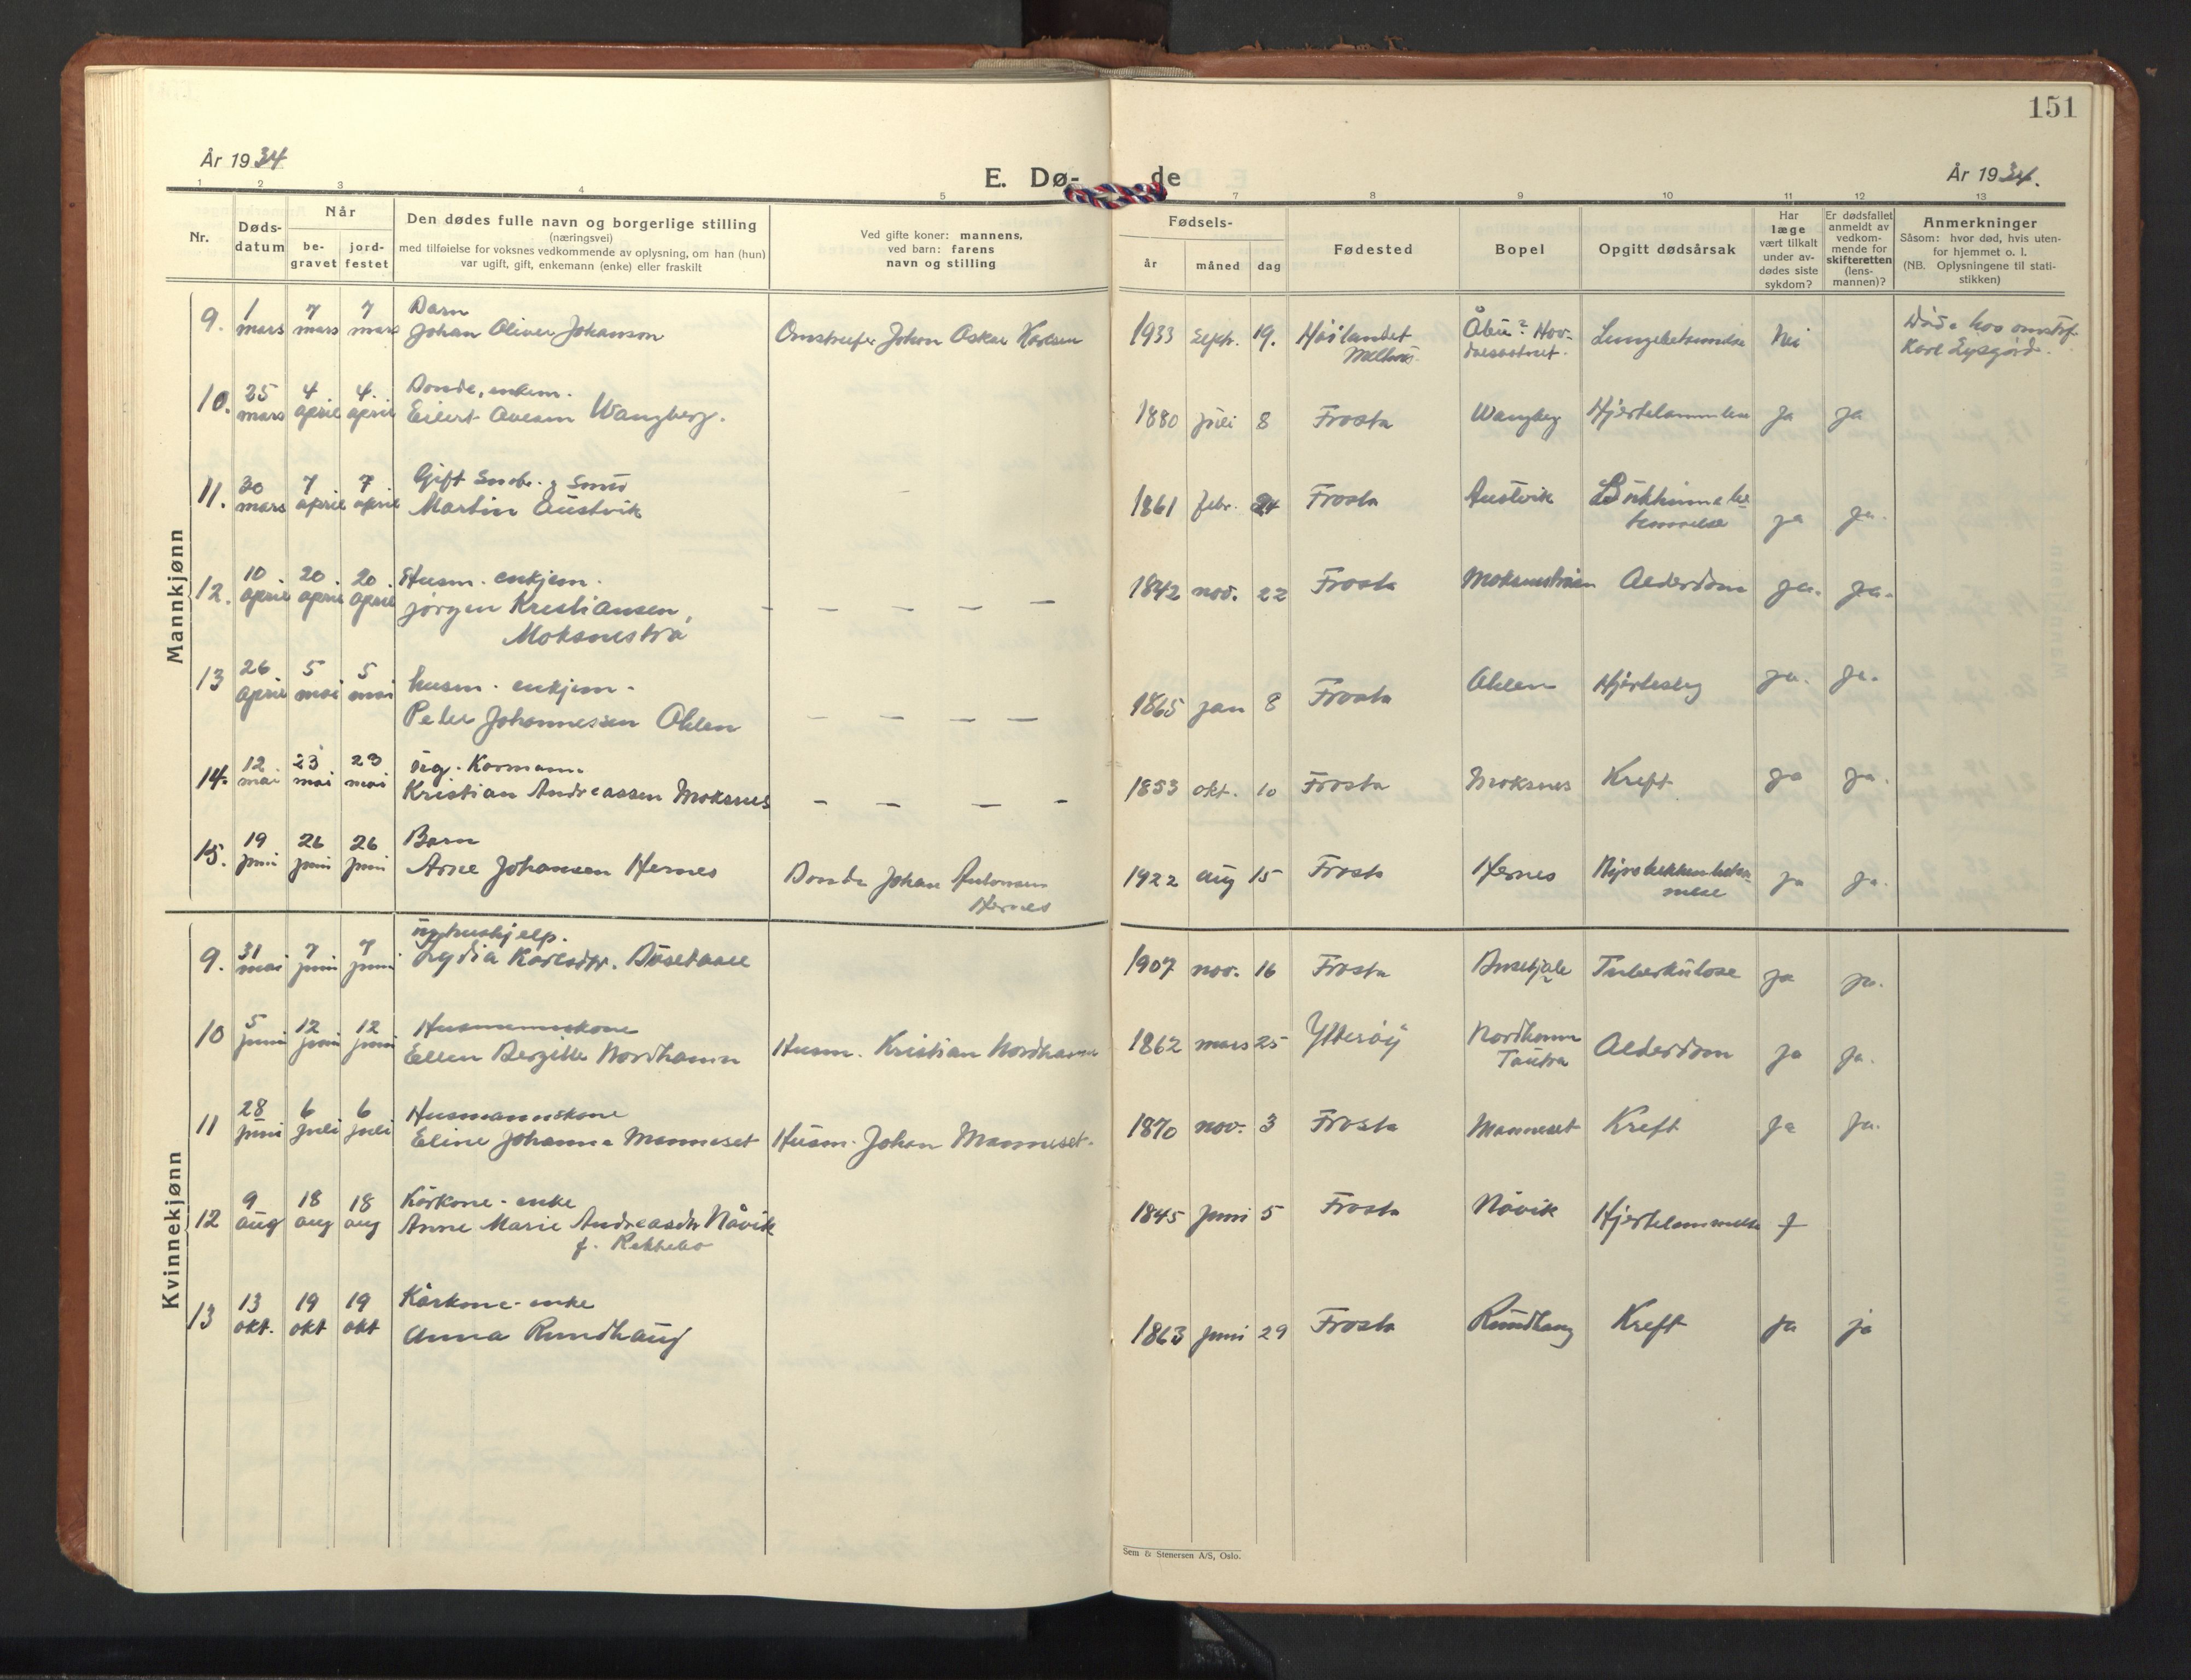 151
År 1934
E. Dø-
de
År 1934.
1 2 3 4 5 7 8 9 10 11 12 13
Nr.
Døds-
datum
Når
be-
gravet
jord-
festet
Den dødes fulle navn og borgerlige stilling
(næringsvei)
med tilføielse for voksnes vedkommende av oplysning, om han (hun)
var ugift, gift, enkemann (enke) eller fraskilt
Ved gifte koner: mannens,
ved barn: farens
navn og stilling
Fødsels-
år
måned
dag
Fødested
Bopel
Opgitt dødsårsak
Har
læge
vært tilkalt
under av-
dødes siste
sykdom?
Er dødsfallet
anmeldt av
vedkom-
mende for
skifteretten
(lens-
mannen)?
Anmerkninger
Såsom: hvor død, hvis uten-
for hjemmet o. l.
(NB. Oplysningene til stati-
stikken)
Mannkjønn
9. 1 mars 7 mars 7 mars Barn
Johan Oliver Johanson Omstreifer Johan Oskar Karlsen 1933 sept. 19. Høilandet Nei
10. 25 mars 4 april 4. april Bonde, enkem.
Eilert Wangberg. 1880 juli 8 Frosta Wangberg Hjertelammelse ja ja
11. 30 mars 7 april 7 april Gift
Martin Austvik 1861 febr. 24 Frosta Austvik ja ja.
12. 10 april 20 april 20 april Husm. enkjem.
Jørgen Kristiansen,
Moksnestrø — — — — — 1842 nov. 22 Frosta Alderdom ja. ja.
13 26 april 5 mai 5 mai husm. enkjem.
Peder Johannessen Ahlen — — — — 1865 jan 8 Frosta Ahlen Hjerteslag ja. ja.
14. 12 mai 23 mai 23 mai ug. Kormann
Kristian Andreassen Moksnes — — — — 1853 okt. 10 Frosta Moksnes Kreft ja ja.
15. 19 juni 26 juni 26 juni Barn
Arne Johansen Hernes Bonde Johan Antonsen
Hernes 1922 aug 15 Frosta Hernes ja ja.
Kvinnekjønn
9. 31 mai 7 juni 7 juni ug. hushjelp.
Lydia Karlsdtr. 1907 nov. 16 Frosta Tuberkulose ja ja.
10 5 juni 12 juni 12 juni Husmannskone
Ellen Bergitte Nordhamn Husm. Kristian Nordhamn 1862 mars 25 Ytterøy Nordhamn
Tautra Alderdom ja ja.
11 28 juni 6 juli 6 juli Husmannskone
Eline Johanna Manneset Husm. Johan Manneset. 1870 nov. 3 Frosta Manneset Kreft ja ja.
12 9 aug 18 aug 18 aug Kårkone - enke
Anne Marie Andreasdtr Nåvik
f. 1845 juni 5 Frosta Nåvik Hjertelammelse
13 13 okt. 19 okt 19 okt Kårkone - enke
Anna Rundhaug 1863 juni 29 Frosta Rundhaug Kreft ja ja
Sem & Stenersen A/S, Oslo.